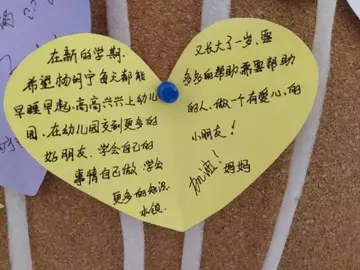 在新的学期.
希望杨明宁每天都能
早睡早起、高高兴兴上幼儿
园、在幼儿园交到更多的
好朋友、学会自己的
事情自己做、学会
更多的知识.
本领.
又长大了一岁、要
多多的帮助需要帮助
的人、做一个有爱心的
小朋友!
加油!
妈妈